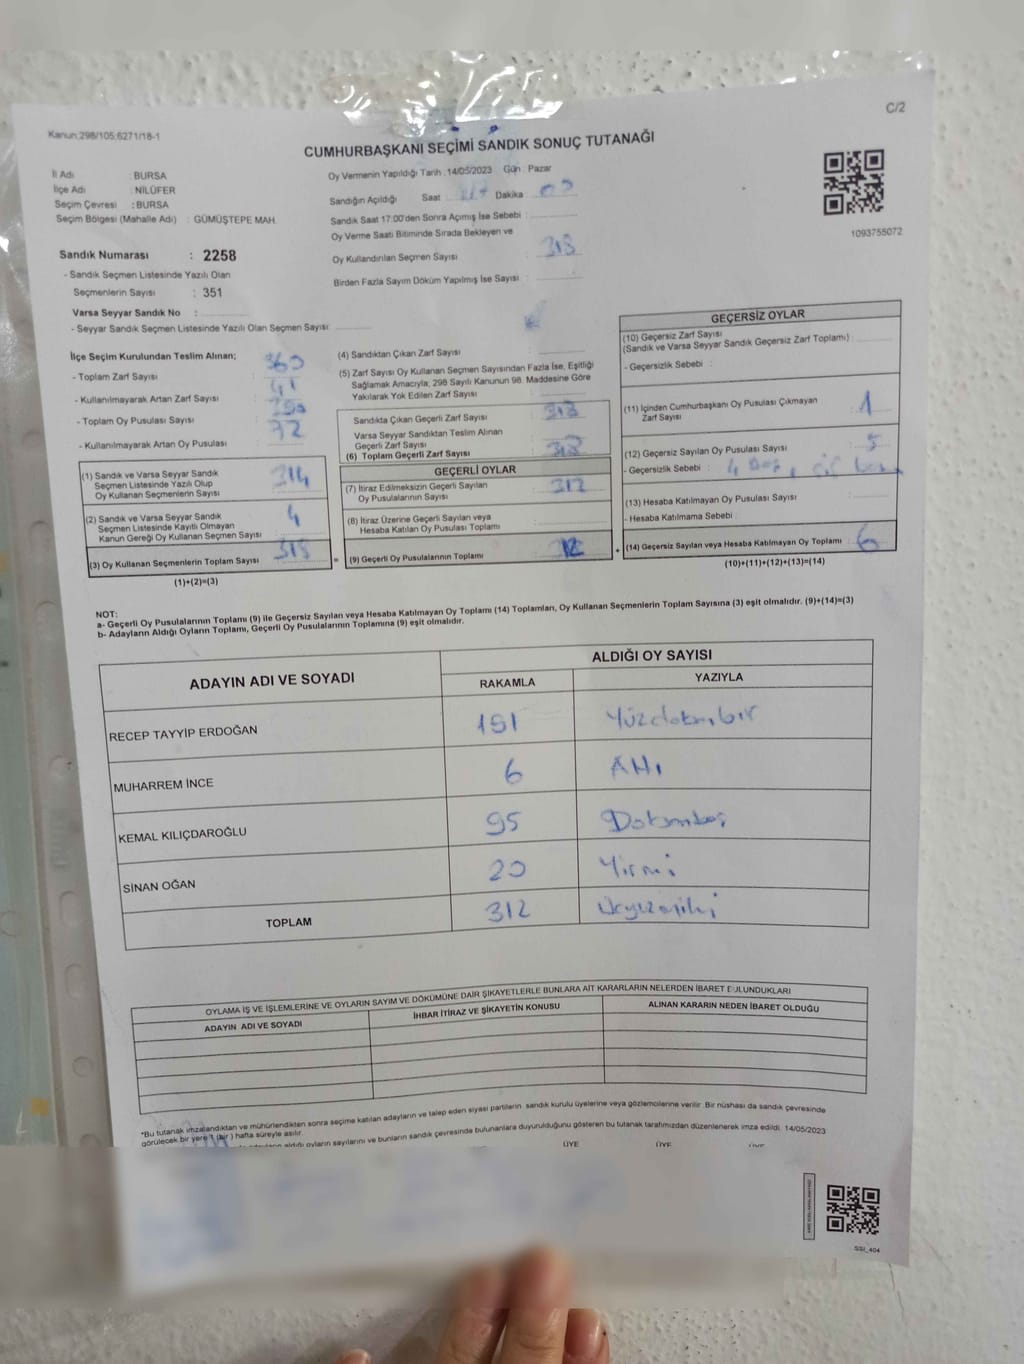 C/2
Kanun:298/105;6271/18-1
CUMHURBAŞKANI SEÇİMİ SANDIK SONUÇ TUTANAĞI
İl Adı : BURSA
İlçe Adı : NİLÜFER
Seçim Çevresi : BURSA
Seçim Bölgesi (Mahalle Adı) : GÜMÜŞTEPE MAH.
Oy Vermenin Yapıldığı Tarih : 14/05/2023 Gün : Pazar
Sandığın Açıldığı Saat Dakika
Sandık Saat 17:00'den Sonra Açımış İse Sebebi :
Oy Verme Saati Bitiminde Sırada Bekleyen ve
Oy Kullandırılan Seçmen Sayısı
Birden Fazla Sayım Döküm Yapılmış İse Sayısı :
1093755072
Sandık Numarası : 2258
- Sandık Seçmen Listesinde Yazılı Olan
Seçmenlerin Sayısı : 351
Varsa Seyyar Sandık No :
- Seyyar Sandık Seçmen Listesinde Yazılı Olan Seçmen Sayısı:
İlçe Seçim Kurulundan Teslim Alınan;
- Toplam Zarf Sayısı : 360
- Kullanılmayarak Artan Zarf Sayısı :
- Toplam Oy Pusulası Sayısı :
- Kullanılmayarak Artan Oy Pusulası :
(1) Sandık ve Varsa Seyyar Sandık
Seçmen Listesinde Yazılı Olup
Oy Kullanan Seçmenlerin Sayısı 314
(2) Sandık ve Varsa Seyyar Sandık
Seçmen Listesinde Kayıtlı Olmayan
Kanun Gereği Oy Kullanan Seçmen Sayısı 4
(3) Oy Kullanan Seçmenlerin Toplam Sayısı
(1)+(2)=(3)
(4) Sandıktan Çıkan Zarf Sayısı :
(5) Zarf Sayısı Oy Kullanan Seçmen Sayısından Fazla İse, Eşitliği
Sağlamak Amacıyla; 298 Sayılı Kanunun 98. Maddesine Göre
Yakılarak Yok Edilen Zarf Sayısı :
Sandıkta Çıkan Geçerli Zarf Sayısı
Varsa Seyyar Sandıktan Teslim Alınan
Geçerli Zarf Sayısı
(6) Toplam Geçerli Zarf Sayısı
GEÇERLİ OYLAR
(7) İtiraz Edilmeksizin Geçerli Sayılan
Oy Pusulalarının Sayısı 312
(8) İtiraz Üzerine Geçerli Sayılan veya
Hesaba Katılan Oy Pusulası Toplamı
= (9) Geçerli Oy Pusulalarının Toplamı
GEÇERSİZ OYLAR
(10) Geçersiz Zarf Sayısı
(Sandık ve Varsa Seyyar Sandık Geçersiz Zarf Toplamı) :
- Geçersizlik Sebebi :
(11) İçinden Cumhurbaşkanı Oy Pusulası Çıkmayan
Zarf Sayısı 1
(12) Geçersiz Sayılan Oy Pusulası Sayısı : 5
- Geçersizlik Sebebi :
(13) Hesaba Katılmayan Oy Pusulası Sayısı
- Hesaba Katılmama Sebebi :
+ (14) Geçersiz Sayılan veya Hesaba Katılmayan Oy Toplamı 6
(10)+(11)+(12)+(13)=(14)
NOT:
a- Geçerli Oy Pusulalarının Toplamı (9) ile Geçersiz Sayılan veya Hesaba Katılmayan Oy Toplamı (14) Toplamları, Oy Kullanan Seçmenlerin Toplam Sayısına (3) eşit olmalıdır. (9)+(14)=(3)
b- Adayların Aldığı Oyların Toplamı, Geçerli Oy Pusulalarının Toplamına (9) eşit olmalıdır.
ADAYIN ADI VE SOYADI ALDIĞI OY SAYISI
RAKAMLA YAZIYLA
RECEP TAYYİP ERDOĞAN 191 Yüzdoksanbir
MUHARREM İNCE 6 Altı
KEMAL KILIÇDAROĞLU 95 Doksanbeş
SİNAN OĞAN 20 Yirmi
TOPLAM 312 Üçyüzoniki
OYLAMA İŞ VE İŞLEMLERİNE VE OYLARIN SAYIM VE DÖKÜMÜNE DAİR ŞİKAYETLERLE BUNLARA AİT KARARLARIN NELERDEN İBARET BULUNDUKLARI
ADAYIN ADI VE SOYADI İHBAR İTİRAZ VE ŞİKAYETİN KONUSU ALINAN KARARIN NEDEN İBARET OLDUĞU
*Bu tutanak imzalandıktan ve mühürlendikten sonra seçime katılan adayların ve talep eden siyasi partilerin sandık kurulu üyelerine veya gözlemcilerine verilir. Bir nüshası da sandık çevresinde
görülecek bir yere 1 (bir) hafta süreyle asılır.
aldığı oyların sayılarını ve bunların sandık çevresinde bulunanlara duyurulduğunu gösteren bu tutanak tarafımızdan düzenlenerek imza edildi. 14/05/2023
ÜYE ÜYE
SSI_404